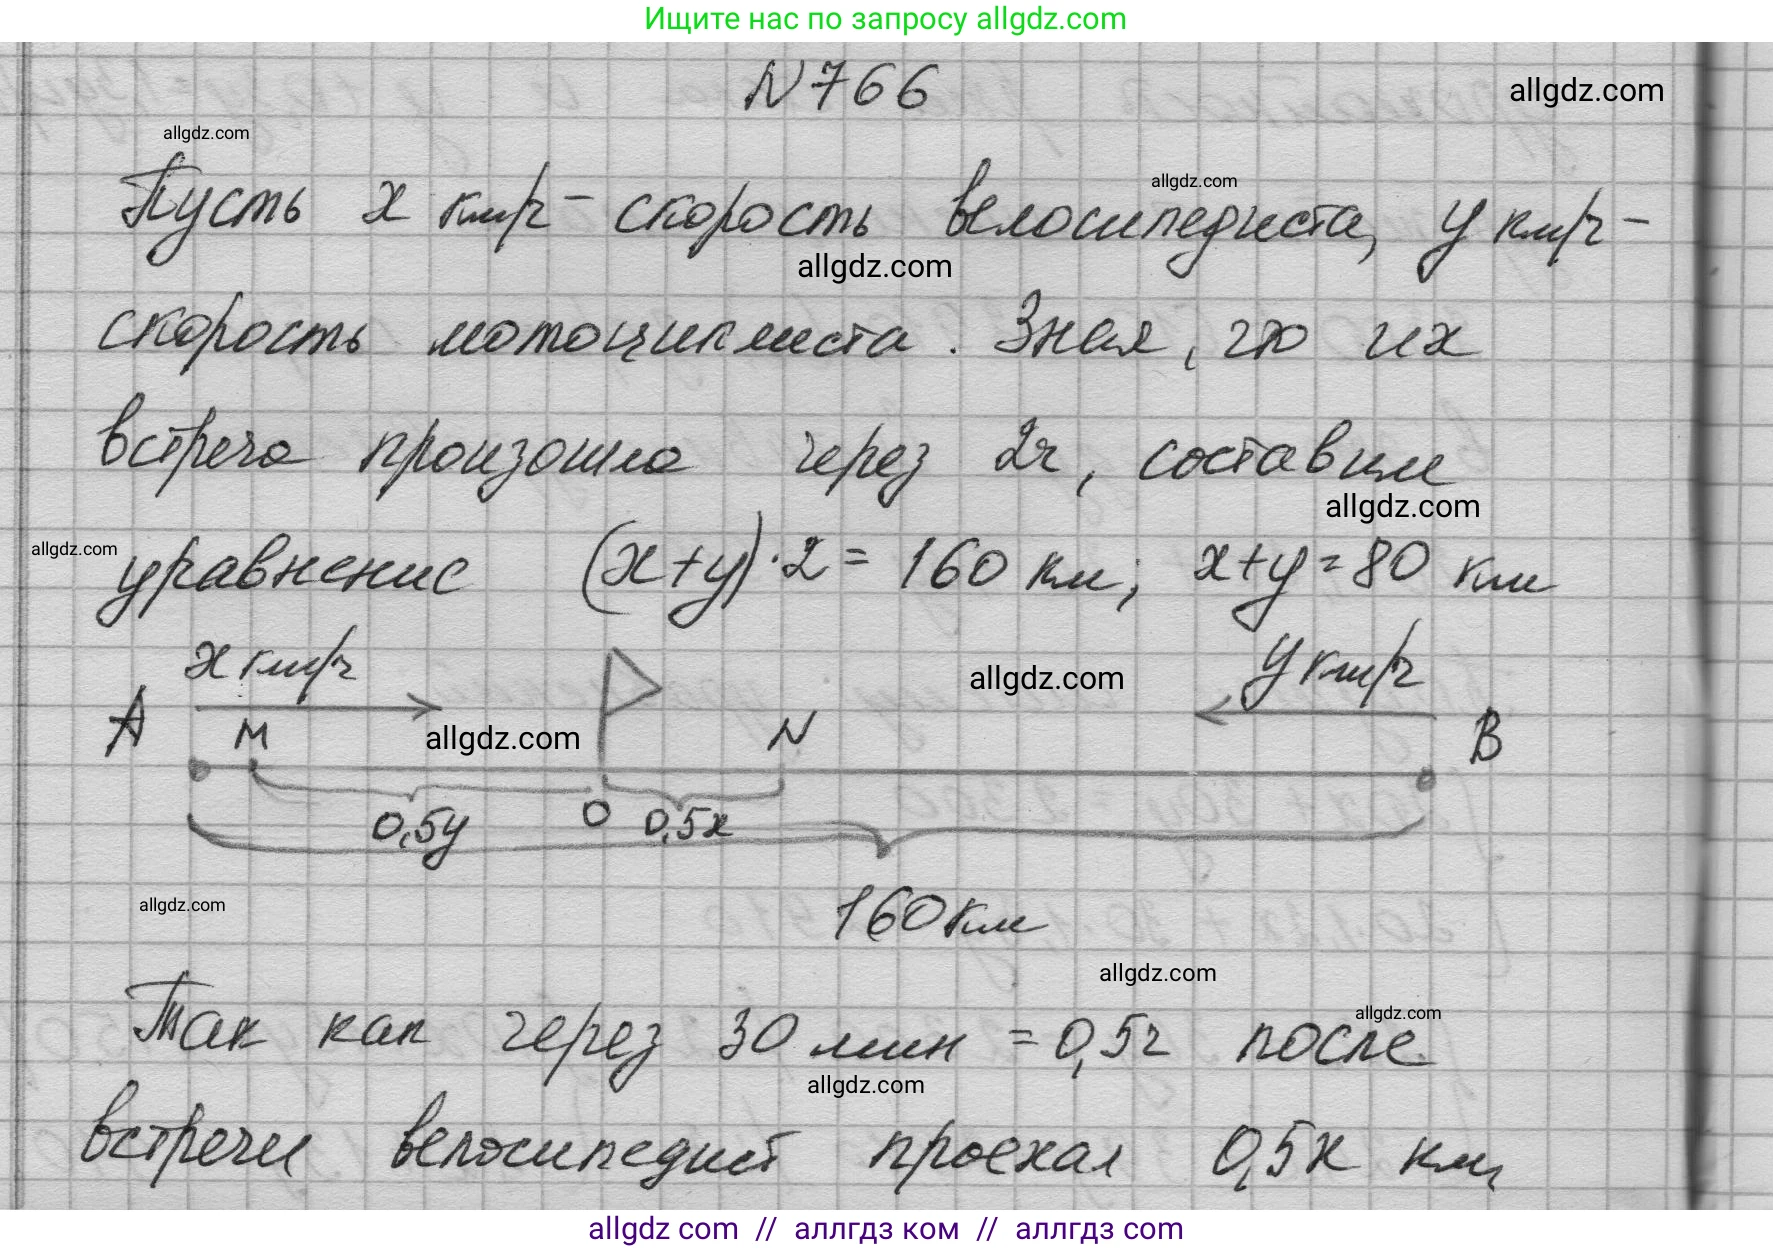 Ищите нас по запросу allgdz.com
N766
allgdz.com
allgdz.com
Пусть x км/ч - скорость велосипедиста, y км/ч -
allgdz.com
allgdz.com
скорость мотоциклиста. Зная, что их
встреча произошла через 2ч, составим
allgdz.com
allgdz.com
уравнение (x+y)·2=160 км; x+y=80 км
x км/ч
y км/ч
allgdz.com
A
M
allgdz.com
N
B
0,5y
O
0,5x
160км
allgdz.com
allgdz.com
allgdz.com
Так как через 30 мин = 0,5ч после
allgdz.com
встречи велосипедист проехал 0,5x км,
allgdz com // аллгдз ком // аллгдз com